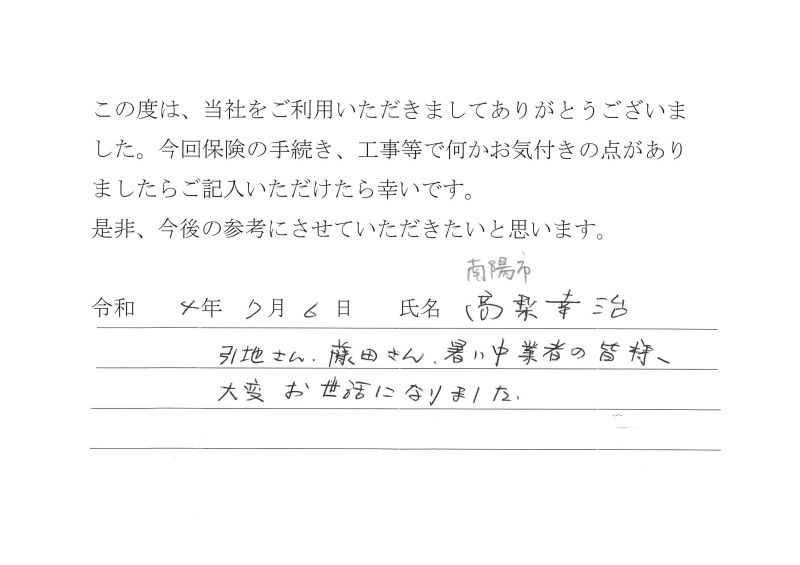 この度は、当社をご利用いただきましてありがとうございま
した。今回保険の手続き、工事等で何かお気付きの点があり
ましたらご記入いただけたら幸いです。
是非、今後の参考にさせていただきたいと思います。
南陽市
令和 4年 7月 6日 氏名 高梨幸治
引地さん、藤田さん、暑い中業者の皆様、
大変お世話になりました。